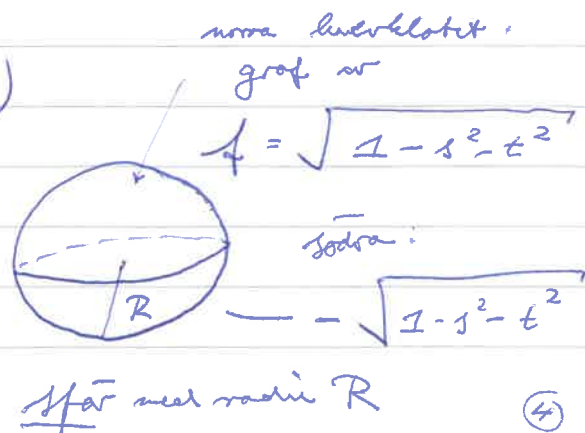 norra halvklotet:
graf av
f = √(1 - s² - t²)
södra:
R — - √(1 - s² - t²)
Sfär med radie R
④